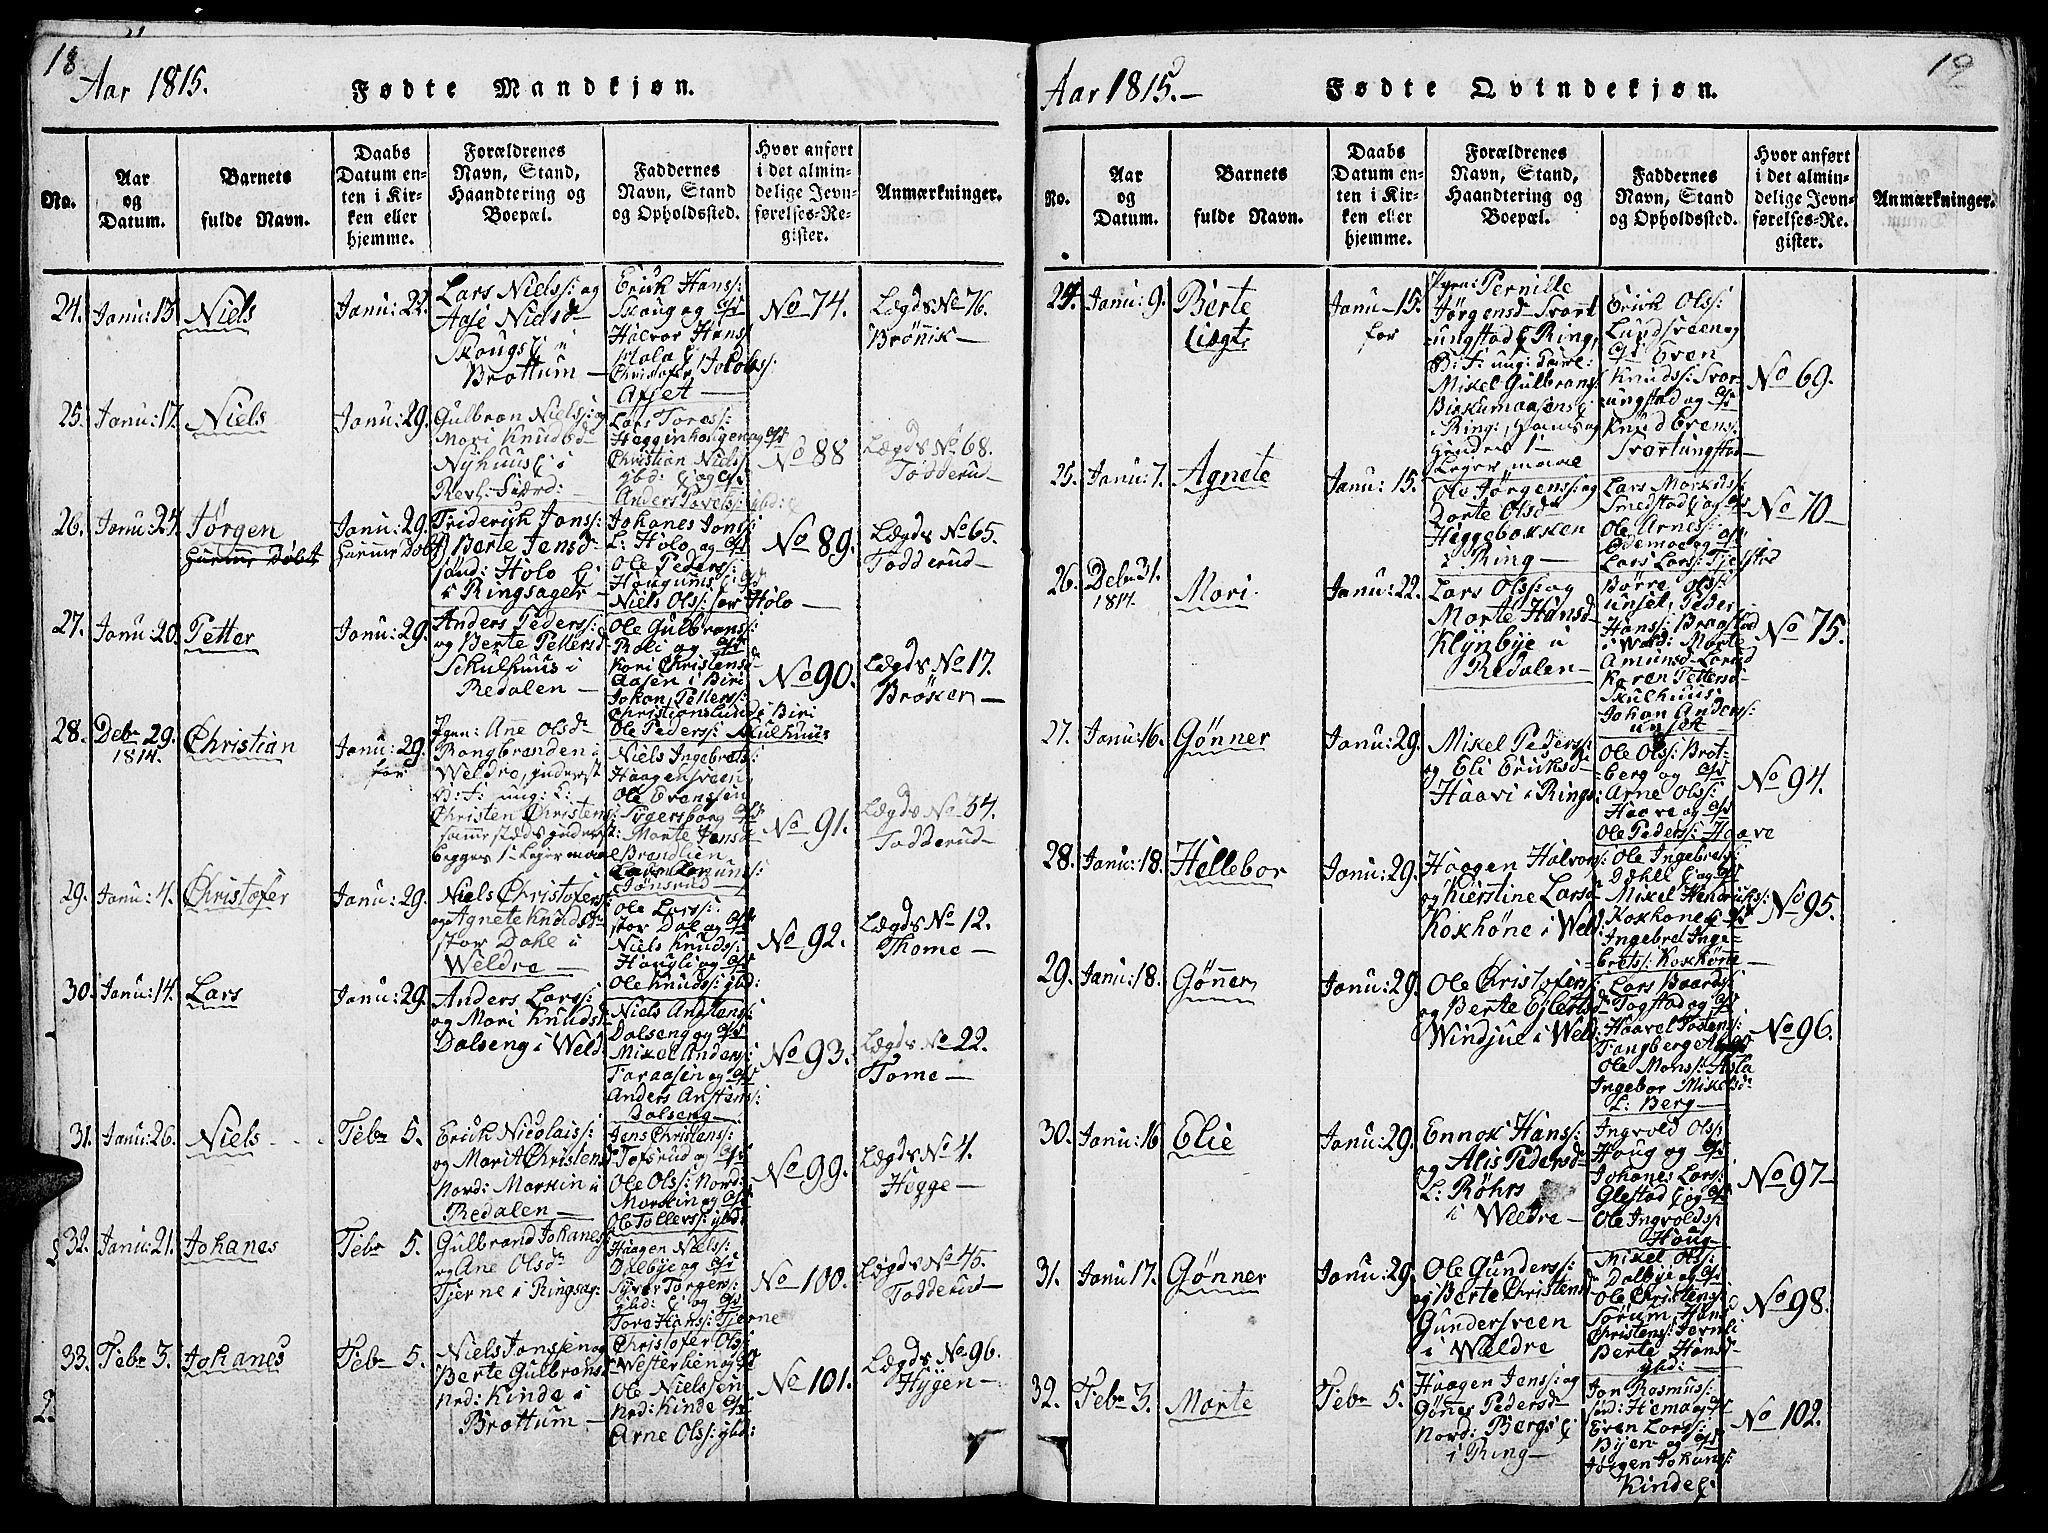 18
Aar 1815.
Fødte Mandkjøn.
No.
Aar
og
Datum.
Barnets
fulde Navn.
Daabs
Datum en-
ten i Kir-
ken eller
hjemme.
Forældrenes
Navn, Stand,
Haandtering og
Boepæl.
Faddernes
Navn, Stand
og Opholdssted.
Hvor anført
i det almin-
delige Jevn-
førelses-Re-
gister.
Anmærkninger.
24. Janu: 13.
Niels
Janu: 22.
Lars Niels: og
Aase Nielsd
i
Brøttum
Erick Hans:
Skoug og
Halvor Hans
Christofer Jakobs:
No 74.
Lægds No 76.
Brønik
25. Janu: 17.
Niels
Janu: 29.
Gulbran Niels: og
Mari Knudsd
Nyhuus i
Lars Tores:
Hegginhougen og
Christian Niels:
gbd: og
Anders Povels: gbd:
No 88
Lægds No 68.
Todderud
26. Janu: 24.
Jørgen
Janu: 29.
Friderich Jans:
Berte Jensd
Holo
i Ringsager
Johanes Jons:
L: Holo og
Ole Peders:
Niels Ols: Holo
No 89.
Lægds No 65.
Todderud
27. Janu: 20.
Petter
Janu: 29.
Anders Peders:
og Berte Pettersd
Skulhuus i
Redalen
Ole Gulbrans:
og
Kari Christensd
Aasen i Biri
Johan Petters:
Christianslund i Biri
Ole Peders: Skulhuus
No 90.
Lægds No 17.
Brøker
28. Debr 29.
1814.
Christian
Janu: 29.
for
Pgen: Ane Olsd
Bangbranden i
Weldre, inderst
B: F: ung: L:
Christen Christens
samesteds inderst:
begges 1 Leiermaal
Niels Ingebrets:
Haagensveen
Ole Evenssen
Sygersborg
Marte Jansd
Brandlien
Jønsrud
No 91.
Lægds No 34.
Todderud
29. Janu: 4.
Christofer
Janu: 29.
Niels Christofers:
og Agnete Knudsd
stor Dahl i
Weldre
Ole Lars:
stor Dal og
Niels Knuds:
Hougli og
Ole Knuds: gbd:
No 92.
Lægds No 12.
Thome
30. Janu: 14.
Lars
Janu: 29.
Anders Lars:
og Mari Knudsd
Dalseng i Weld
Niels Anstens:
Dalseng og
Mikel Anders:
Faraasen og
Anders Anstens:
Dalseng
No 93.
Lægds No 22.
Tome
31. Janu: 26.
Niels
Febr 5.
Erick Nicolais:
og Marit Christens
Nord: Markin i
Redalen
Jens Christens:
Tofsrud og
Ole Ols: Nord:
Markin og
Ole Tollers: gbd:
No 99.
Lægds No 4.
Hegge
32. Janu: 21.
Johanes
Febr 5.
Gulbrand Johanes:
og Ane Olsd
Tjerne i Ringsag:
Haagen Niels:
Dalbye og
Syver Jørgens:
gbd: og
Tore Hans: Tjerne
No 100.
Lægds No 45.
Todderud
33. Febr 3.
Johanes
Febr 5.
Niels Janssen og
Berte Gulbrans
ned: Kinde i
Brøttum
Christofer Ols:
Westerlien og
Ole Nielssen
Ned: Kinde
Arne Ols: gbd:
No 101.
Lægds No 96.
Hygen
2.
19
Aar 1815.
Fødte Qvindekjøn.
No.
Aar
og
Datum.
Barnets
fulde Navn.
Daabs
Datum en-
ten i Kir-
ken eller
hjemme.
Forældrenes
Navn, Stand,
Haandtering og
Boepæl.
Faddernes
Navn, Stand
og Opholdssted.
Hvor anført
i det almin-
delige Jevn-
førelses-Re-
gister.
Anmærkninger.
24. Janu: 9.
Berte
Janu 15.
for
Pgen: Pernille
Jørgensd Svart
ungstad Ring,
B: F: ung: Carl:
Mikel Gulbrans
i Ring:, hans og
hendes 1
Leiermaal
Erick Ols:
Lundsveen og
Even
Knuds: Svar-
tungstad og
Knud Evens:
Svartungstad
No 69.
25. Janu: 7.
Agnete
Janu: 15.
Ole Jørgens: og
Dorte Olsd
Heggebakken
i Ring
Lars Markus:
Smedstad og
Ole Arnes:
Edemoe og
Lars Lars: Tjelstad
No 70
26. Debr 31.
1814.
Mari
Janu: 22.
Lars Ols: og
Marte Hansd
Klynbye i
Redalen
Børre Ols:
unset, Peder
Hans: Braastad
i Wald: Marte
Amundsd
Karen Pettersd
Skulhuus
Johan Anders:
unset
No 75.
27. Janu: 16.
Gønner
Janu: 29.
Mikel Peders:
og Eli Ericksd
Haavi i Rings:
Ole Ols: Brot-
berg og
Arne Ols:
Haave og
Ole Peders: Haave
No 94.
28. Janu: 18.
Hellebor
Janu: 29.
Haagen Halvors:
og Kierstine Larsd
Kokhøne i Weld
Ole Ingebrets:
Dæhle og
Mikel Hendriks:
Kokhøne
Ingebret Inge-
brets: Kokhøne
No 95.
29. Janu: 18.
Gønner
Janu: 29.
Ole Christofers:
og Berte Ejlertsd
Windjue i Weld
Lars Baards:
Togstad og
Haavel Postens:
Fangberg
Ole Mons: Asla
Ingebor Mikelsd
L: Berg
No 96.
30. Janu: 16
Elie
Janu: 29.
Ennok Hans:
og Alis Pedersd
L: Røhrs
i Weldre
Ingvold Ols:
Houg og
Johanes Lars:
Glestad og
Ole Ingvolds:
Houg
No 97
31. Janu 17.
Gønner
Janu: 29.
Ole Gunders:
og Berte Christensd
Gundersveen
i Weldre
Mikel Ols:
Dalbye og
Ole Christens:
Sørum, Hans
Christens: Jernli
Berte Hansd
gbd:
No 98.
32. Febr 3.
Marte
Febr 5.
Haagen Jens: og
Gønes Pedersd
Nord: Bergs
i Ring
Jon Rasmus:
Even Lars:
Byen og
Jørgen Johans:
Kinde
No 102.